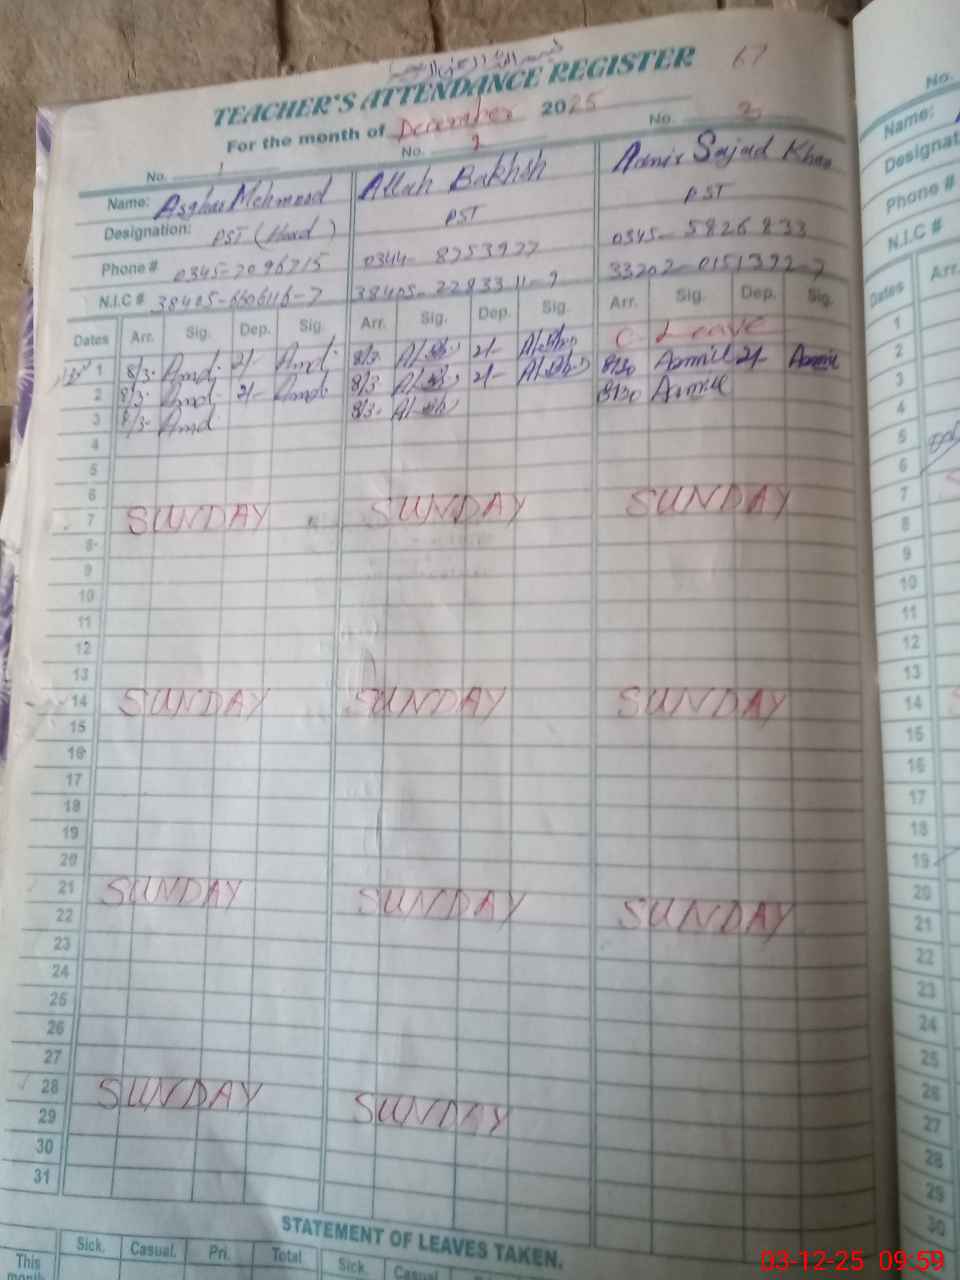 بسم اللہ الرحمن الرحیم
TEACHER'S ATTENDANCE REGISTER 67
For the month of December 2025
No. 1 No. 2 No. 3
Name: Asghar Mehmood Allah Bakhsh Aamir Sajad Khan
Designation: PST (Head) PST PST
Phone # 0345-7096715 0344- 8753927 0345-5826833
N.I.C # 38405-6606116-7 38405-2283311-9 33202-0151392-7
Dates Arr. Sig. Dep. Sig. Arr. Sig. Dep. Sig. Arr. Sig. Dep. Sig.
1 8/3. Amd. 2/- Amd. 8/3. 2/- C- Leave
2 8/3. Amd. 2/- Amd. 8/3. 2/- 8/30 2/-
3 8/3. Amd 8/3. 8/30
4
5
6
7 SUNDAY SUNDAY SUNDAY
8
9
10
11
12
13
14 SUNDAY SUNDAY SUNDAY
15
16
17
18
19
20
21 SUNDAY SUNDAY SUNDAY
22
23
24
25
26
27
28 SUNDAY SUNDAY
29
30
31
STATEMENT OF LEAVES TAKEN.
Sick. Casual. Pri. Total Sick. Casual
This
month
No.
Name:
Designat
Phone #
N.I.C #
Dates Arr.
1
2
3
4
5
6
7 S
8
9
10
11
12
13
14 S
15
16
17
18
19
20
21
22
23
24
25
26
27
28
29
30
03-12-25 09:59